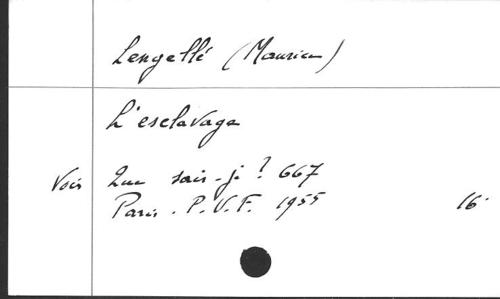 Lengellé (Maurice)
L'esclavage
Voir Que sais-je? 667
Paris. P.U.F. 1955 16°